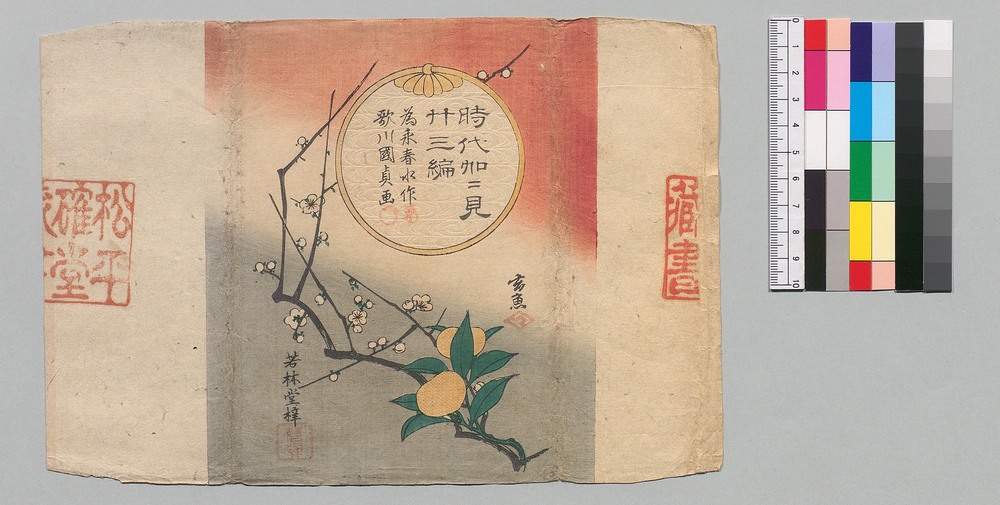 時代加ゞ見
廿三編
為永春水作
歌川國貞画
玄魚
若林堂梓
松平
確堂
蔵書
0
1
2
3
4
5
6
7
8
9
10